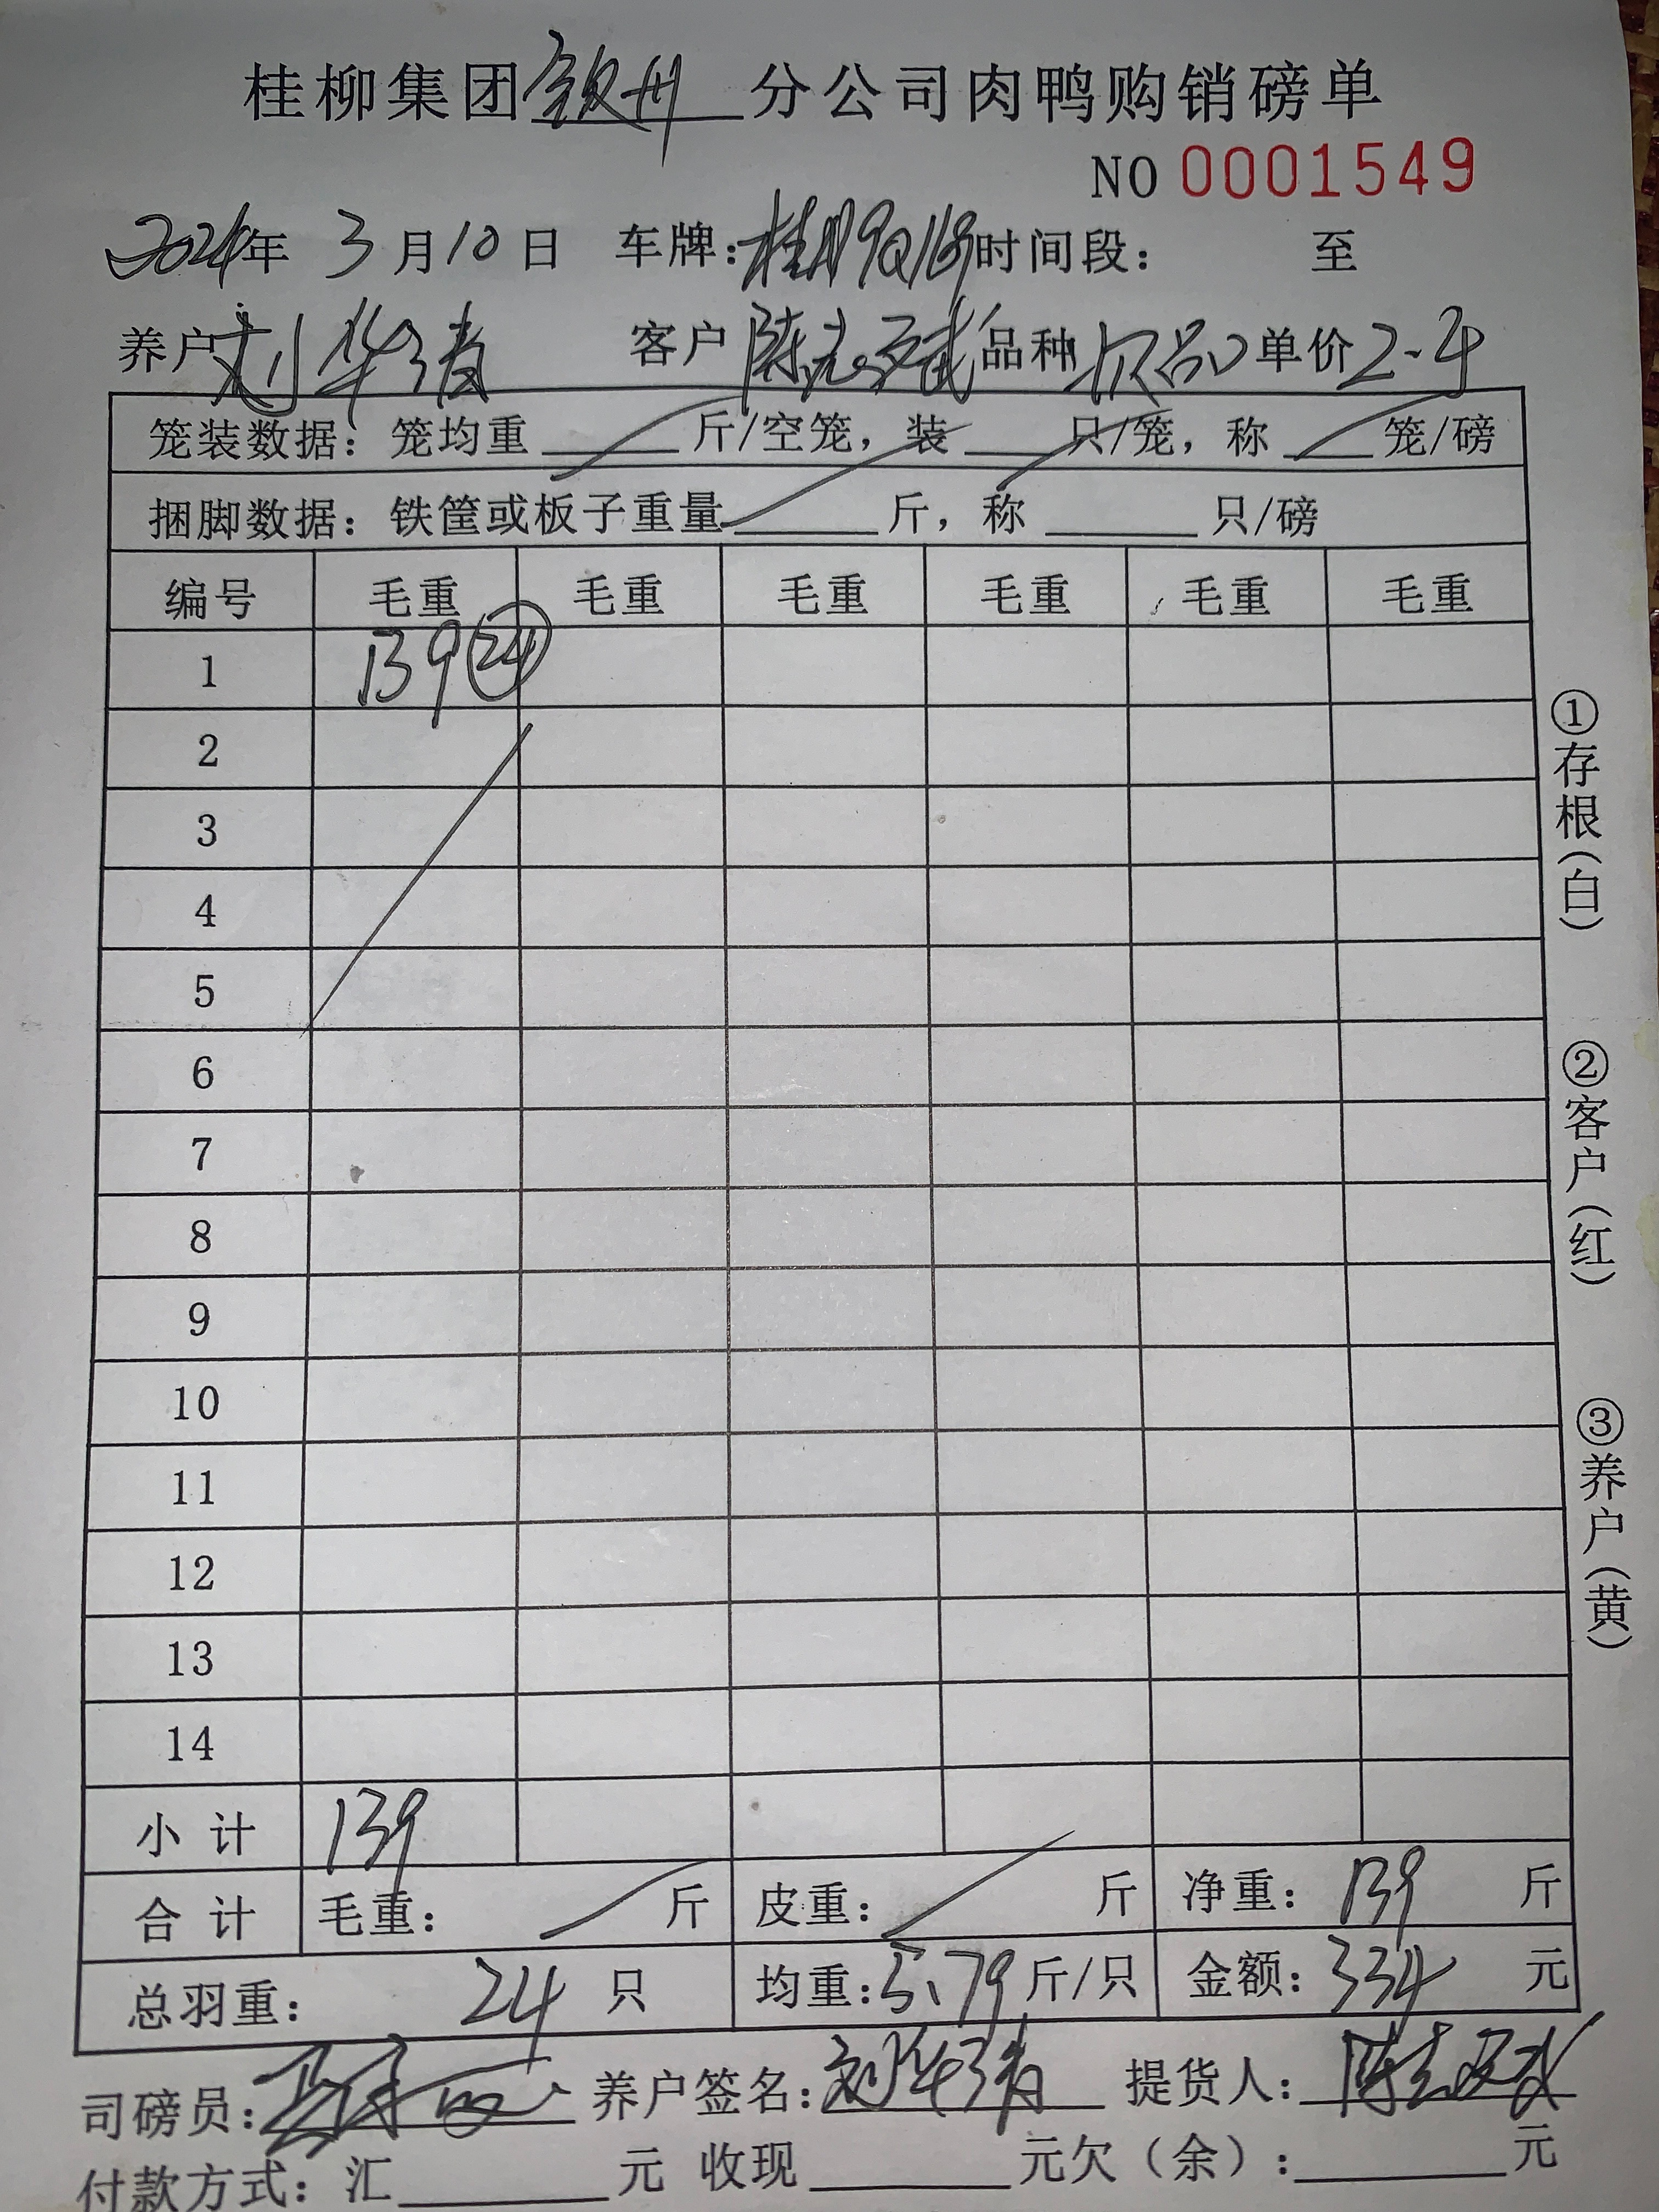 桂柳集团钦州分公司肉鸭购销磅单
NO 0001549
2024年 3月10日 车牌: 时间段: 至
养户 刘华 客户 陈志 品种 次品 单价 2.4
笼装数据: 笼均重 斤/空笼, 装 只/笼, 称 笼/磅
捆脚数据: 铁筐或板子重量 斤, 称 只/磅
编号 毛重 毛重 毛重 毛重 毛重 毛重
1 139 ㉔
2
3
4
5
6
7
8
9
10
11
12
13
14
小计 139
合计 毛重: 斤 皮重: 斤 净重: 139 斤
总羽重: 24 只 均重: 5.79 斤/只 金额: 334 元
司磅员: 养户签名: 刘华 提货人: 陈志
付款方式: 汇 元 收现 元欠(余): 元
①存根(白)
②客户(红)
③养户(黄)